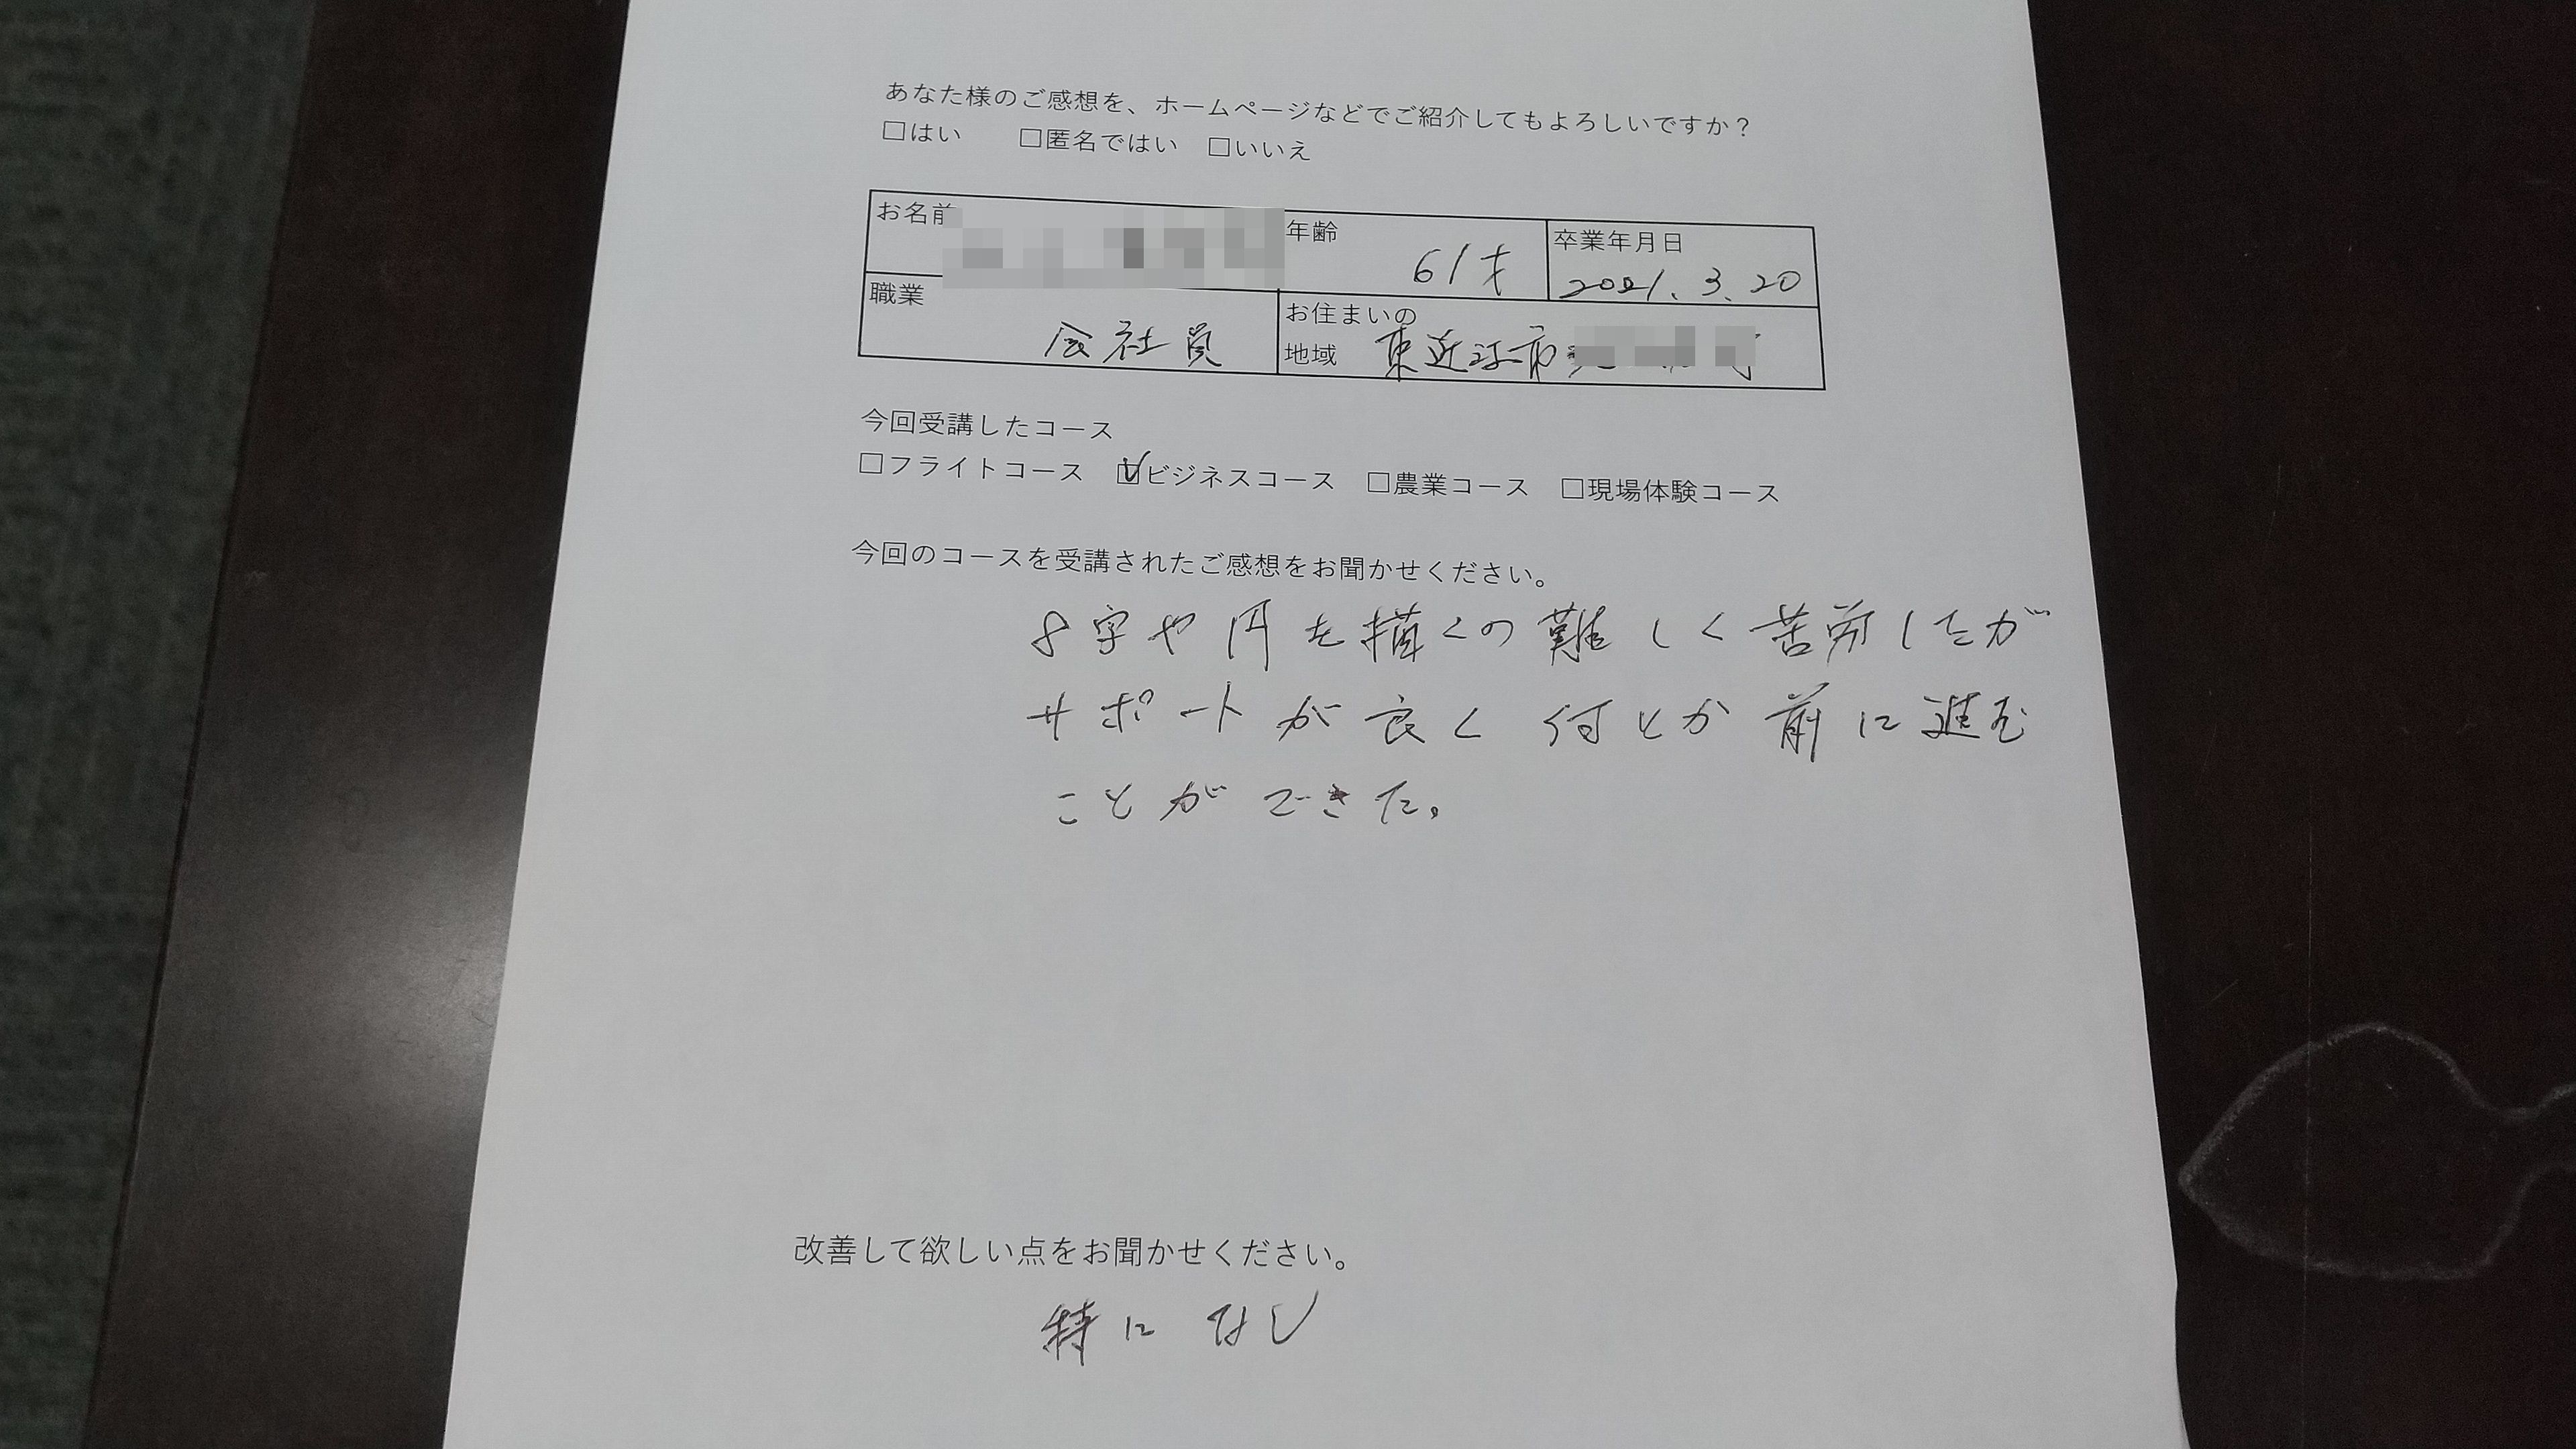 あなた様のご感想を、ホームページなどでご紹介してもよろしいですか？
□はい □匿名ではい □いいえ
お名前
年齢 61才
卒業年月日
2021.3.20
職業 会社員
お住まいの
地域 東近江市
今回受講したコース
□フライトコース ☑ビジネスコース □農業コース □現場体験コース
今回のコースを受講されたご感想をお聞かせください。
8字や円を描くの難しく苦労したが
サポートが良く何とか前に進む
ことができた。
改善して欲しい点をお聞かせください。
特になし